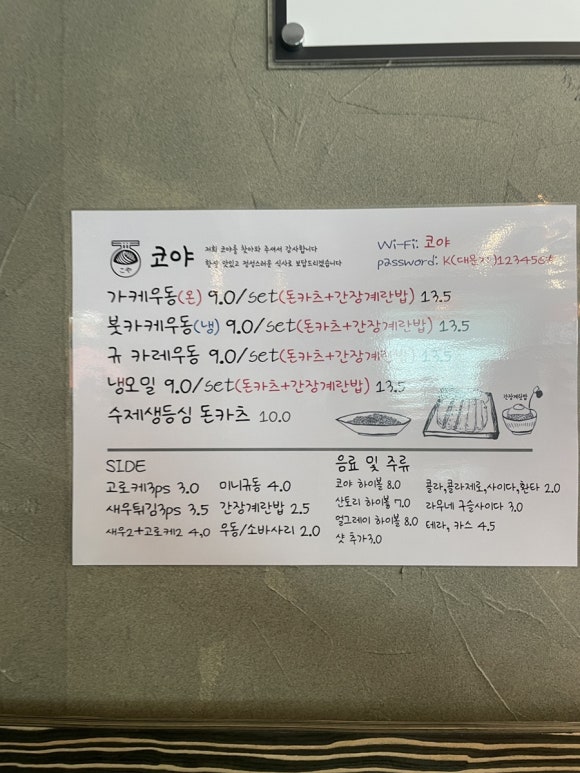 코야
저희 코야를 찾아와 주셔서 감사합니다
항상 맛있고 정성스러운 식사로 보답드리겠습니다
Wi-Fi: 코야
password: K(대문자)123456*
가케우동(온) 9.0/set(돈카츠+간장계란밥) 13.5
붓카케우동(냉) 9.0/set(돈카츠+간장계란밥) 13.5
규 카레우동 9.0/set(돈카츠+간장계란밥) 13.5
냉모밀 9.0/set(돈카츠+간장계란밥) 13.5
수제생등심 돈카츠 10.0
간장계란밥
SIDE
고로케3ps 3.0 미니규동 4.0
새우튀김3ps 3.5 간장계란밥 2.5
새우2+고로케2 4.0 우동/소바사리 2.0
음료 및 주류
코야 하이볼 8.0 콜라,콜라제로,사이다,환타 2.0
산토리 하이볼 7.0 라무네 구슬사이다 3.0
얼그레이 하이볼 8.0 테라, 카스 4.5
샷 추가3.0